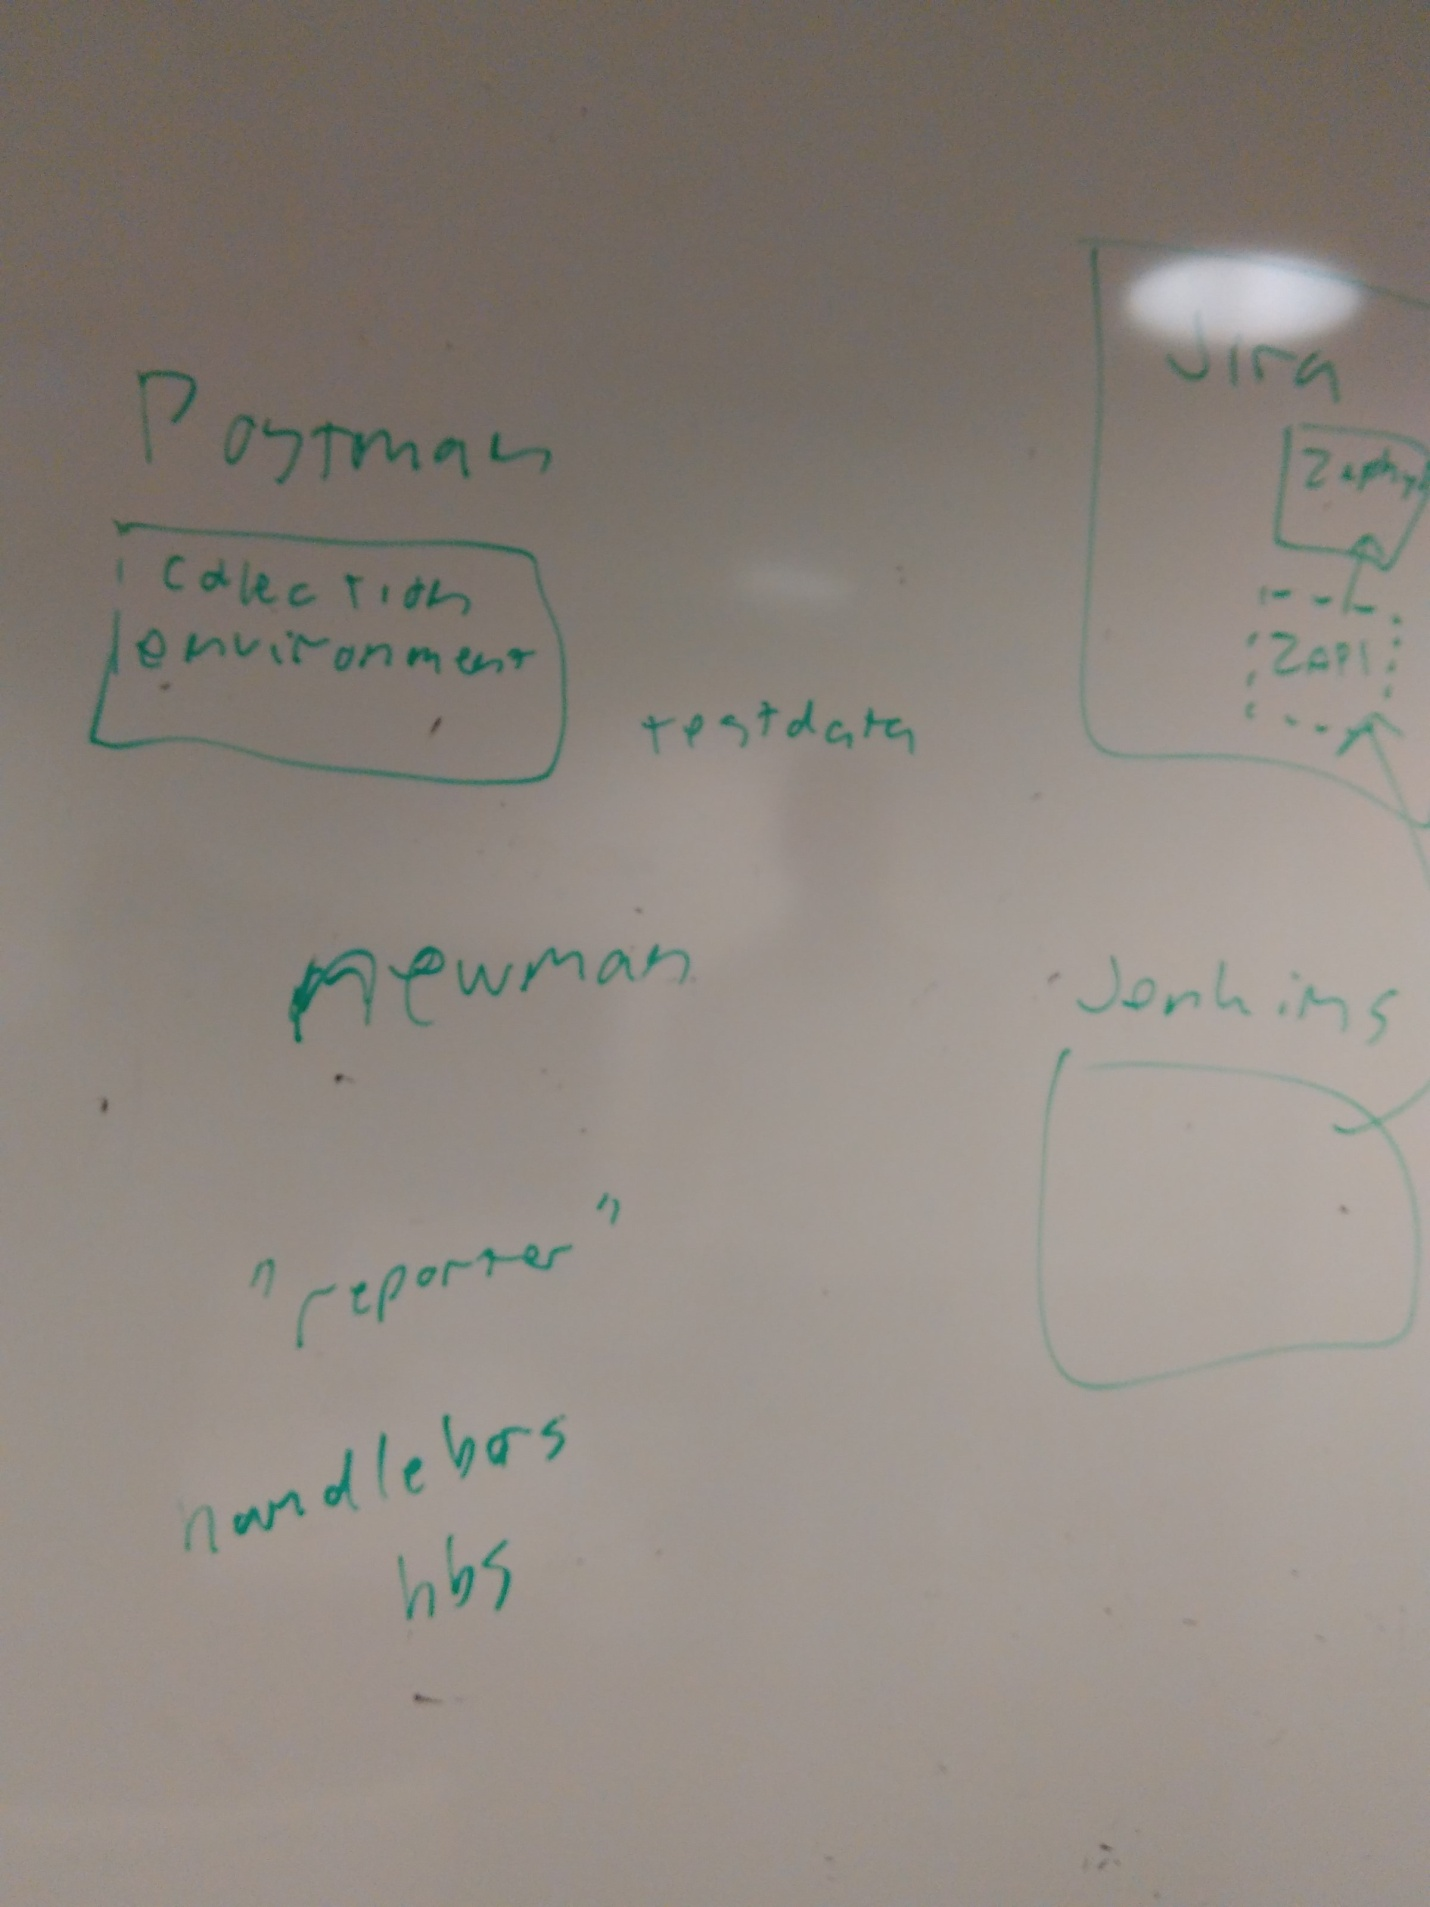 Postman
collection
environment
testdata
newman
"reporter"
handlebars
hbs
Jira
Zephyr
ZAPI
Jenkins